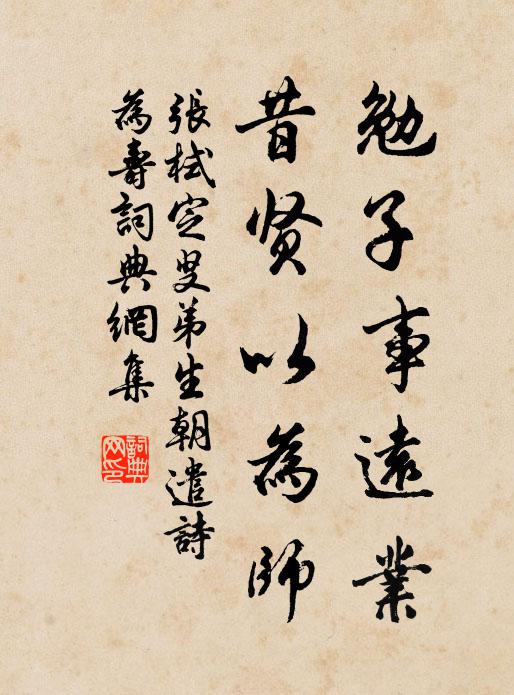 勉子事遠業
昔贤以為師
張栻定叟弟生朝遣詩
為壽詞典網集
詞典网印